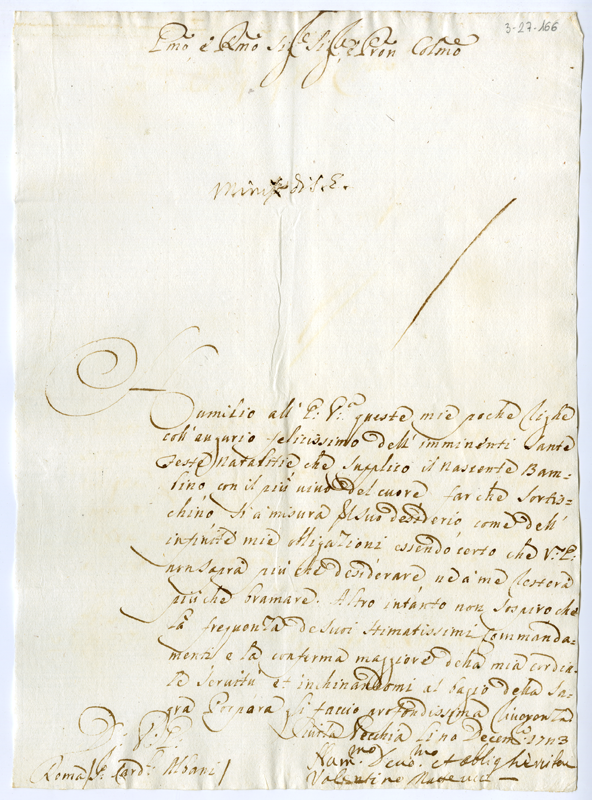 3-27-166
Emo, e Rmo Sige Sige, e Pron Colmo
Umilio all' E: V:a queste mie poche righe
coll' augurio felicissimo dell' imminenti Sante
Feste Natalitie che supplico il nascente Bam-
bino con il più vivo del cuore far che sortis-
chino si a misura del suo desiderio come dell'
infinite mie obligazioni essendo certo che V:a E:
non saprà più che desiderare, ne a me resterà
più che bramare. Altro intanto non sospiro che
la frequenza de suoi stimatissimi Commanda-
menti e la conferma maggiore della mia cordia-
le servitù et inchinandomi al bacio della Sa-
gra Porpora li faccio profondissima riverenza
Civita Vecchia li no Decem: 1713
D: V: E:
Hum:mo Devo:mo et oblig
Roma / S: Card: Albani /
Valentino